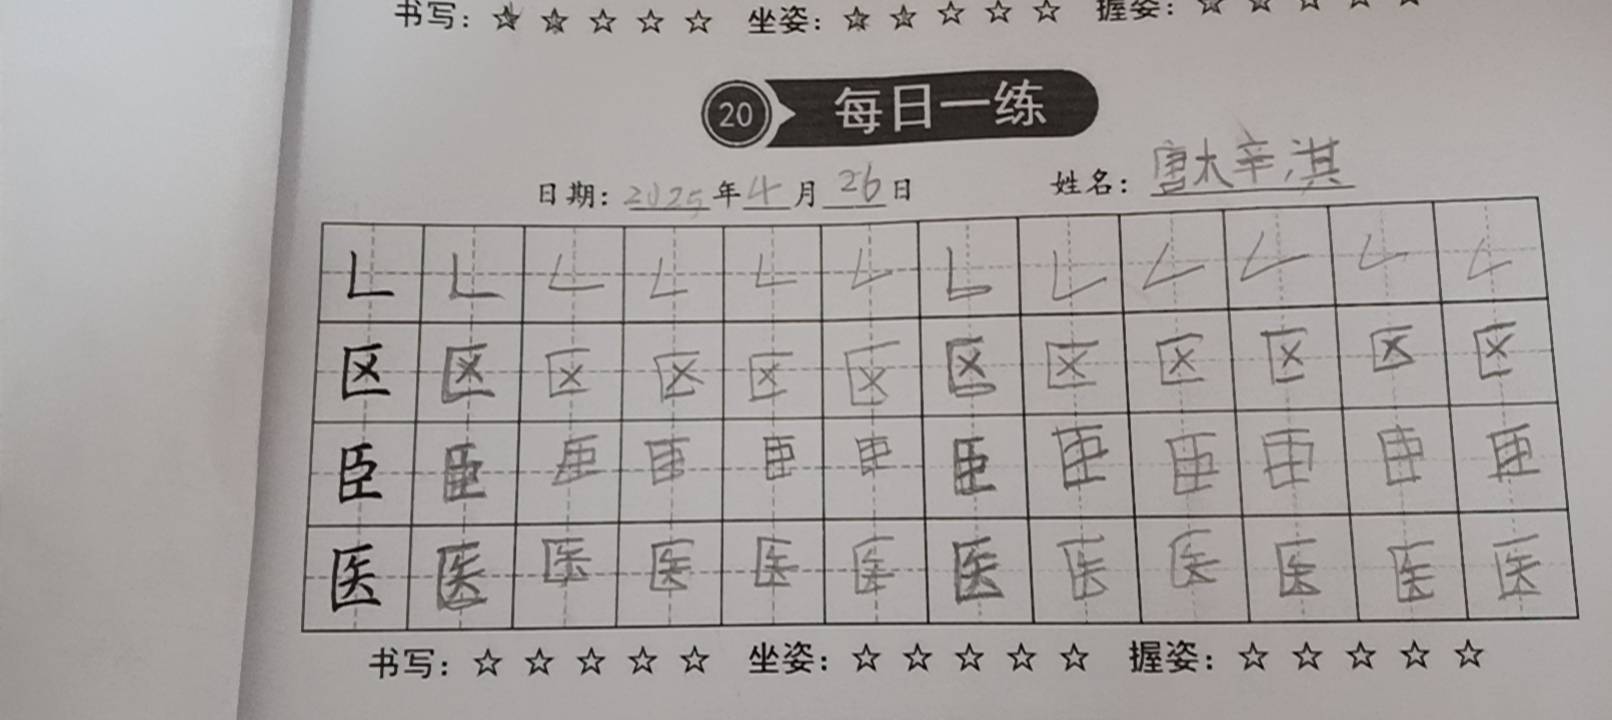 书写：☆ ☆ ☆ ☆ ☆ 坐姿：☆ ☆ ☆ ☆ ☆ 握姿：☆ ☆ ☆ ☆ ☆
20 每日一练
日期：2025年4月26日 姓名：唐木辛淇
𠃊 𠃊 𠃊 𠃊 𠃊 𠃊 𠃊 𠃊 𠃊 𠃊 𠃊 𠃊
区 区 区 区 区 区 区 区 区 区 区 区
臣 臣 臣 臣 臣 臣 臣 臣 臣 臣 臣 臣
医 医 医 医 医 医 医 医 医 医 医 医
书写：☆ ☆ ☆ ☆ ☆ 坐姿：☆ ☆ ☆ ☆ ☆ 握姿：☆ ☆ ☆ ☆ ☆